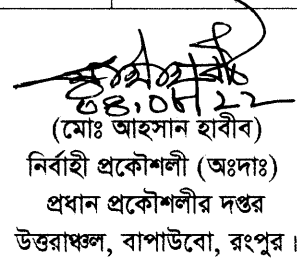 ০৪.০৮.২২
(মোঃ আহসান হাবীব)
নির্বাহী প্রকৌশলী (অঃদাঃ)
প্রধান প্রকৌশলীর দপ্তর
উত্তরাঞ্চল, বাপাউবো, রংপুর।